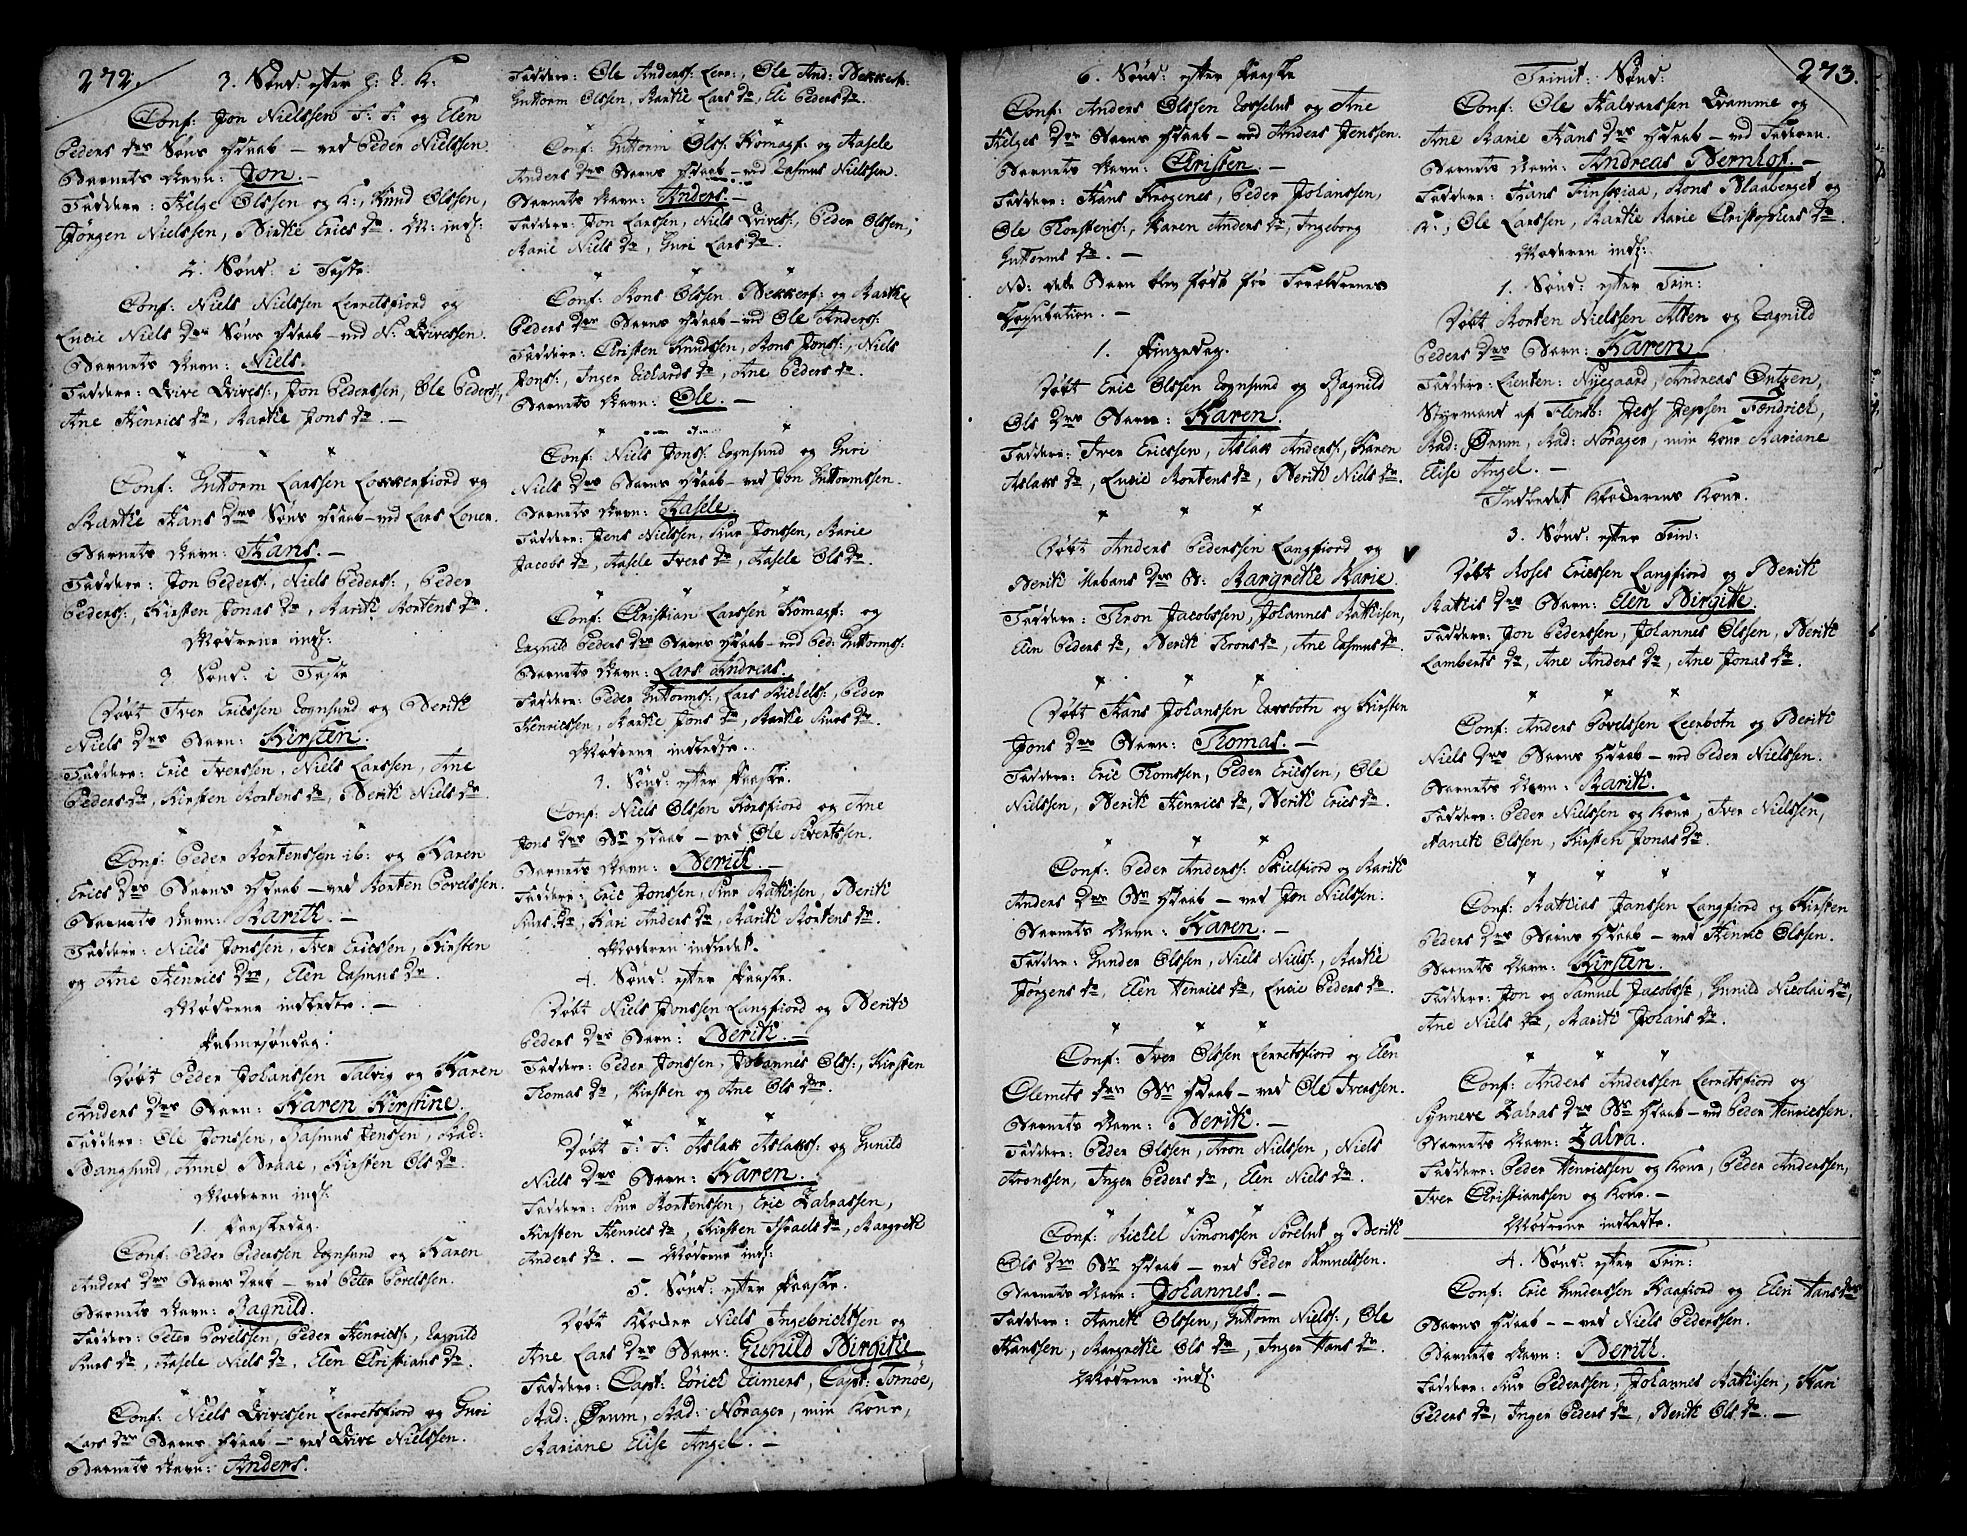 272.
3. Sønd: efter H: 3 K:
Conf: Jon Nielssen F: F: og Elen
Peders Drs Søns hdaab – ved Peder Nielssen.
Barnets Navn: Jon. –
Faddere: Helge Olssen og K:, Knud Olssen,
Jørgen Nielssen, Birthe Erics Dr. M: indl:
2. Sønd: i Faste.
Conf: Niels Nielssen Lerretsfiord og
Lucie Niels Drs Søns hdaab – ved N: Qvivessen.
Barnets Navn: Niels.
Faddere: Qvive Qvivess:, Jon Pederssen, Ole Pederss:,
Ane Henrics Dr, Marthe Jons Dr. –
Conf: Guttorm Larssen Lokkerfiord og
Marthe Hans Drs Søns hdaab – ved Lars
Barnets Navn: Hans. –
Faddere: Jon Peders:, Niels Peders:, Peder
Peders:, Kirsten Jonas Dr, Marith Mortens Dr.
Mødrene indl:
3 Sønd: i Faste
Døbt Iver Ericssen Rognsund og Berith
Niels Drs Barn: Kirsten.
Faddere: Eric Iverssen, Niels Larssen, Ane
Peders Dr, Kirsten Mortens Dr, Berith Niels Dr.
Conf: Peder Mortenssen ib: og Karen
Erics Drs Barns hdaab – ved Morten Povelssen.
Barnets Navn: Marith. –
Faddere: Niels Jonssen, Iver Ericssen, Kirsten
og Ane Henrics Drs, Elen Rasmus Dr.
Mødrene indledte. –
Palmesøndag:
Døbt Peder Johanssen Talvig og Karen
Anders Drs Barn: Karen Kirstine.
Faddere: Ole Jonssen, Rasmus Jenssen, Mad:
Bangsund, Anne Braae, Kirsten Ols Dr.
Moderen indl:
1. Paaskedag:
Conf: Peder Pederssen Rognsund og Karen
Anders Drs Barns Daab – ved Peter Povelssen.
Barnets Navn: Ragnild.
Faddere: Peter Povelssen, Peder Henricss:, Ragnild
Aasele Niels Dr, Elen Christians Dr.
Conf: Niels Qvivessen Lerretsfiord og Guri
Lars Drs Barns hdaab – ved Qvive Nielssen.
Barnets Navn: Anders.
Faddere: Ole Anderss: Lerr:, Ole And: Bekkerf:
Guttorm Olssen, Marthe Lars Dr, Eli Peders Dr.
Conf: Guttorm Olss: Komagf: og Aasele
Anders Drs Barns hdaab – ved Rasmus Nielssen.
Barnets Navn: Anders. –
Faddere: Jon Larssen, Niels Qvivess:, Peder Olssen,
Marie Niels Dr, Guri Lars Dr.
Conf: Mons Olssen Bekkerf: og Marthe
Peders Drs Barns hdaab – ved Ole Anderss:
Faddere: Christen Knudssen, Mons Jonss:, Niels
Jonss:, Inger Richards Dr, Ane Peders Dr.
Barnets Navn: Ole. –
Conf: Niels Jonss: Rognsund og Guri
Niels Drs Barns hdaab – ved Jon Guttormssen.
Barnets Navn: Aasele.
Faddere: Jens Nielssen, Siur Jonssen, Marie
Jacobs Dr, Aasele Ivers Dr, Aasele Ols Dr.
Conf: Christian Larssen Komagf: og
Ragnild Peders Drs Barns hdaab – ved Ped: Guttormss:
Barnets Navn: Lars Andreas.
Faddere: Peder Guttormss:, Lars Michelss:, Peder
Henricssen, Marthe Jons Dr, Marthe Siurs Dr.
Mødrene indledte.
3. Sønd: efter Paaske.
Conf: Niels Olssen Korsfiord og Ane
Jons Drs Bs hdaab – ved Ole Sivertssen.
Barnets Navn: Berith. –
Faddere: Eric Jonssen, Siur Mathisen, Berith
Siurs Dr, Kari Anders Dr, Marith Mortens Dr.
Moderen indledet.
4. Sønd: efter Paaske.
Døbt Niels Jonssen Langfiord og Berith
Peders Drs Barn: Berith. –
Faddere: Peder Jonssen, Johannes Olss:, Kirsten
Thomas Dr, Kirsten og Ane Ols Drs.
Døbt F: F: Aslak Aslakss: og Gunild
Niels Drs Barn: Karen.
Faddere: Siur Mortenssen, Eric Zakrassen,
Kirsten Henrics Dr, Kirsten Israels Dr, Margreth
Anders Dr. – Mødrene indl:
5. Sønd: efter Paaske.
Døbt Kloker Niels Ingebrictssen og
Ane Lars Drs Barn: Gunild Birgithe
Faddere: Capt: Eörich Reimers, Capt: Tornöe,
Mad: Ørum, Mad: Norager, min Kone,
Mariane Elise Angel. –
273.
6. Sønd: efter Paaske
Conf: Anders Olssen og Ane
Helges Drs Barns hdaab – ved Anders Jenssen.
Barnets Navn: Christen. –
Faddere: Hans Krogenes, Peder Johanssen,
Ole Thorstenss:, Karen Anders Dr, Ingeborg
Guttorms Dr. –
NB: dette Barn blev født før Forældrenes
Copulation. –
1. Pinzedag.
Døbt Eric Olssen Rognsund og Ragnild
Ols Drs Barn: Karen.
Faddere: Iver Ericssen, Aslak Anderss:, Karen
Aslaks Dr, Lucie Mortens Dr, Berith Niels Dr.
Døbt Anders Pederssen Langfiord og
Berith Urbans Drs B: Margrethe Marie.
Faddere: Thron Jacobssen, Johannes Mathisen,
Elen Peders Dr, Berith Throns Dr, Ane Rasmus Dr.
Døbt Hans Johanssen Leirbotn og Kirsten
Jons Drs Barn: Thomas. –
Faddere: Eric Thomssen, Peder Ericssen, Ole
Nielssen, Berith Henrics Dr, Berith Erics Dr.
Conf: Peder Anderss: Skielfiord og Marith
Anders Drs Bs hdaab – ved Jon Nielssen.
Barnets Navn: Karen. –
Faddere: Gunder Olssen, Niels Nielss:, Marthe
Jørgens Dr, Elen Henrics Dr, Lucie Peders Dr.
Conf: Iver Olssen Lerretsfiord og Elen
Clemets Drs Bs hdaab – ved Ole Iverssen.
Barnets Navn: Berith. –
Faddere: Peder Olssen, Aron Nielssen, Niels
Aronssen, Inger Peders Dr, Elen Niels Dr.
Conf: Michel Simonssen og Berith
Ols Drs Bs hdaab – ved Peder Samuelssen.
Barnets Navn: Johannes. –
Faddere: Haneth Olssen, Guttorm Nielss:, Ole
Hanssen, Margrethe Ols Dr, Inger Hans Dr.
Mødrene indl:
Trinit: Sønd:
Conf: Ole Halvorssen Qvamme og
Ane Marie Hans Drs hdaab – ved Faderen.
Barnets Navn: Andreas Bernhof. –
Faddere: Hans Mons Blaaberget og
K:, Ole Larssen, Marthe Marie Christophers Dr.
Moderen indl:
1. Sønd: efter Trin:
Døbt Morten Nielssen Alten og Ragnild
Peders Drs Barn: Karen.
Faddere: Lieuten: Nyegaard, Andreas
Styrmand af Flensb: Jess Jepsen Fondrich,
Mad: Ørum, Mad: Norager, min Kone Mariane
Elise Angel. –
Indledet Klokerens Kone.
3. Sønd: efter Trin:
Døbt Moses Ericssen Langfiord og Berith
Mathis Drs Barn: Elen Birgitte.
Faddere: Jon Pederssen, Johannes Olssen, Berith
Lamberts Dr, Ane Anders Dr, Ane Jonas Dr.
Conf: Anders Povelssen Leerbotn og Berith
Niels Drs Barns hdaab – ved Peder Nielssen.
Barnets Navn: Marith.
Faddere: Peder Nielssen og Kone, Iver Nielssen,
Haneth Olssen, Kirsten Jonas Dr.
Conf: Mathias Janssen Langfiord og Kirsten
Peders Drs Barns hdaab – ved Henric Olssen.
Barnets Navn: Kirsten.
Faddere: Jon og Samuel Jacobss:, Gunild Nicolai Dr,
Ane Niels Dr, Marith Johans Dr.
Conf: Anders Anderssen Lerretsfiord og
Synneve Zakras Drs Bs hdaab – ved Peder Henricssen.
Barnets Navn: Zakra.
Faddere: Peder Henricssen og Kone, Peder Anderssen,
Iver Christianssen og Kone. –
Mødrene indledte.
4. Sønd: efter Trin:
Conf: Eric Gunderssen Kaafiord og Elen Hans Drs
Barns hdaab – – ved Niels Pederssen.
Barnets Navn: Berith.
Faddere: Siur Pederssen, Johannes Mathisen, Kari
Peders Dr, Inger Peders Dr, Berith Ols Dr. –